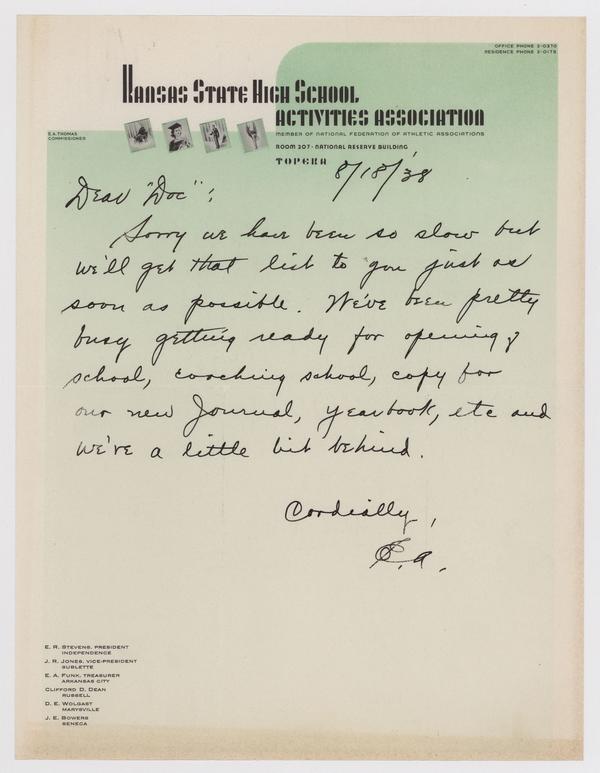 OFFICE PHONE 2-0370
RESIDENCE PHONE 2-0178
KANSAS STATE HIGH SCHOOL
ACTIVITIES ASSOCIATION
E. A. THOMAS
COMMISSIONER
MEMBER OF NATIONAL FEDERATION OF ATHLETIC ASSOCIATIONS
ROOM 207 · NATIONAL RESERVE BUILDING
TOPEKA
8/18/'38
Dear "Doc":
Sorry we have been so slow but
we'll get that list to you just as
soon as possible. We've been pretty
busy getting ready for opening of
school, coaching school, copy for
our new Journal, yearbook, etc and
we're a little bit behind.
Cordially,
E.A.
E. R. STEVENS, PRESIDENT
INDEPENDENCE
J. R. JONES, VICE-PRESIDENT
SUBLETTE
E. A. FUNK, TREASURER
ARKANSAS CITY
CLIFFORD D. DEAN
RUSSELL
D. E. WOLGAST
MARYSVILLE
J. E. BOWERS
SENECA